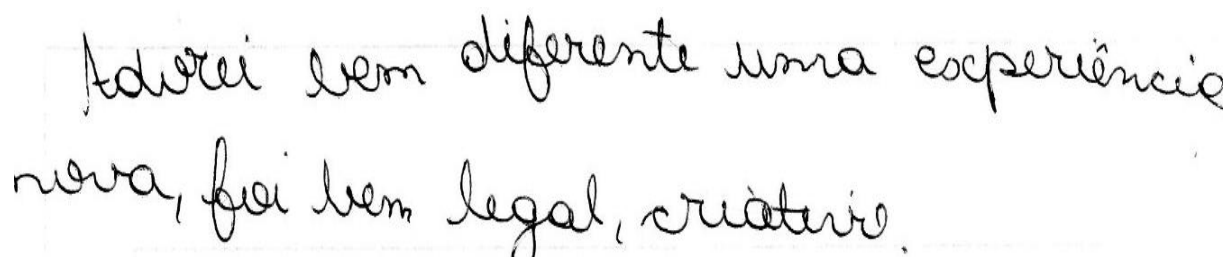 Adorei bem diferente uma experiência
nova, foi bem legal, criativo.